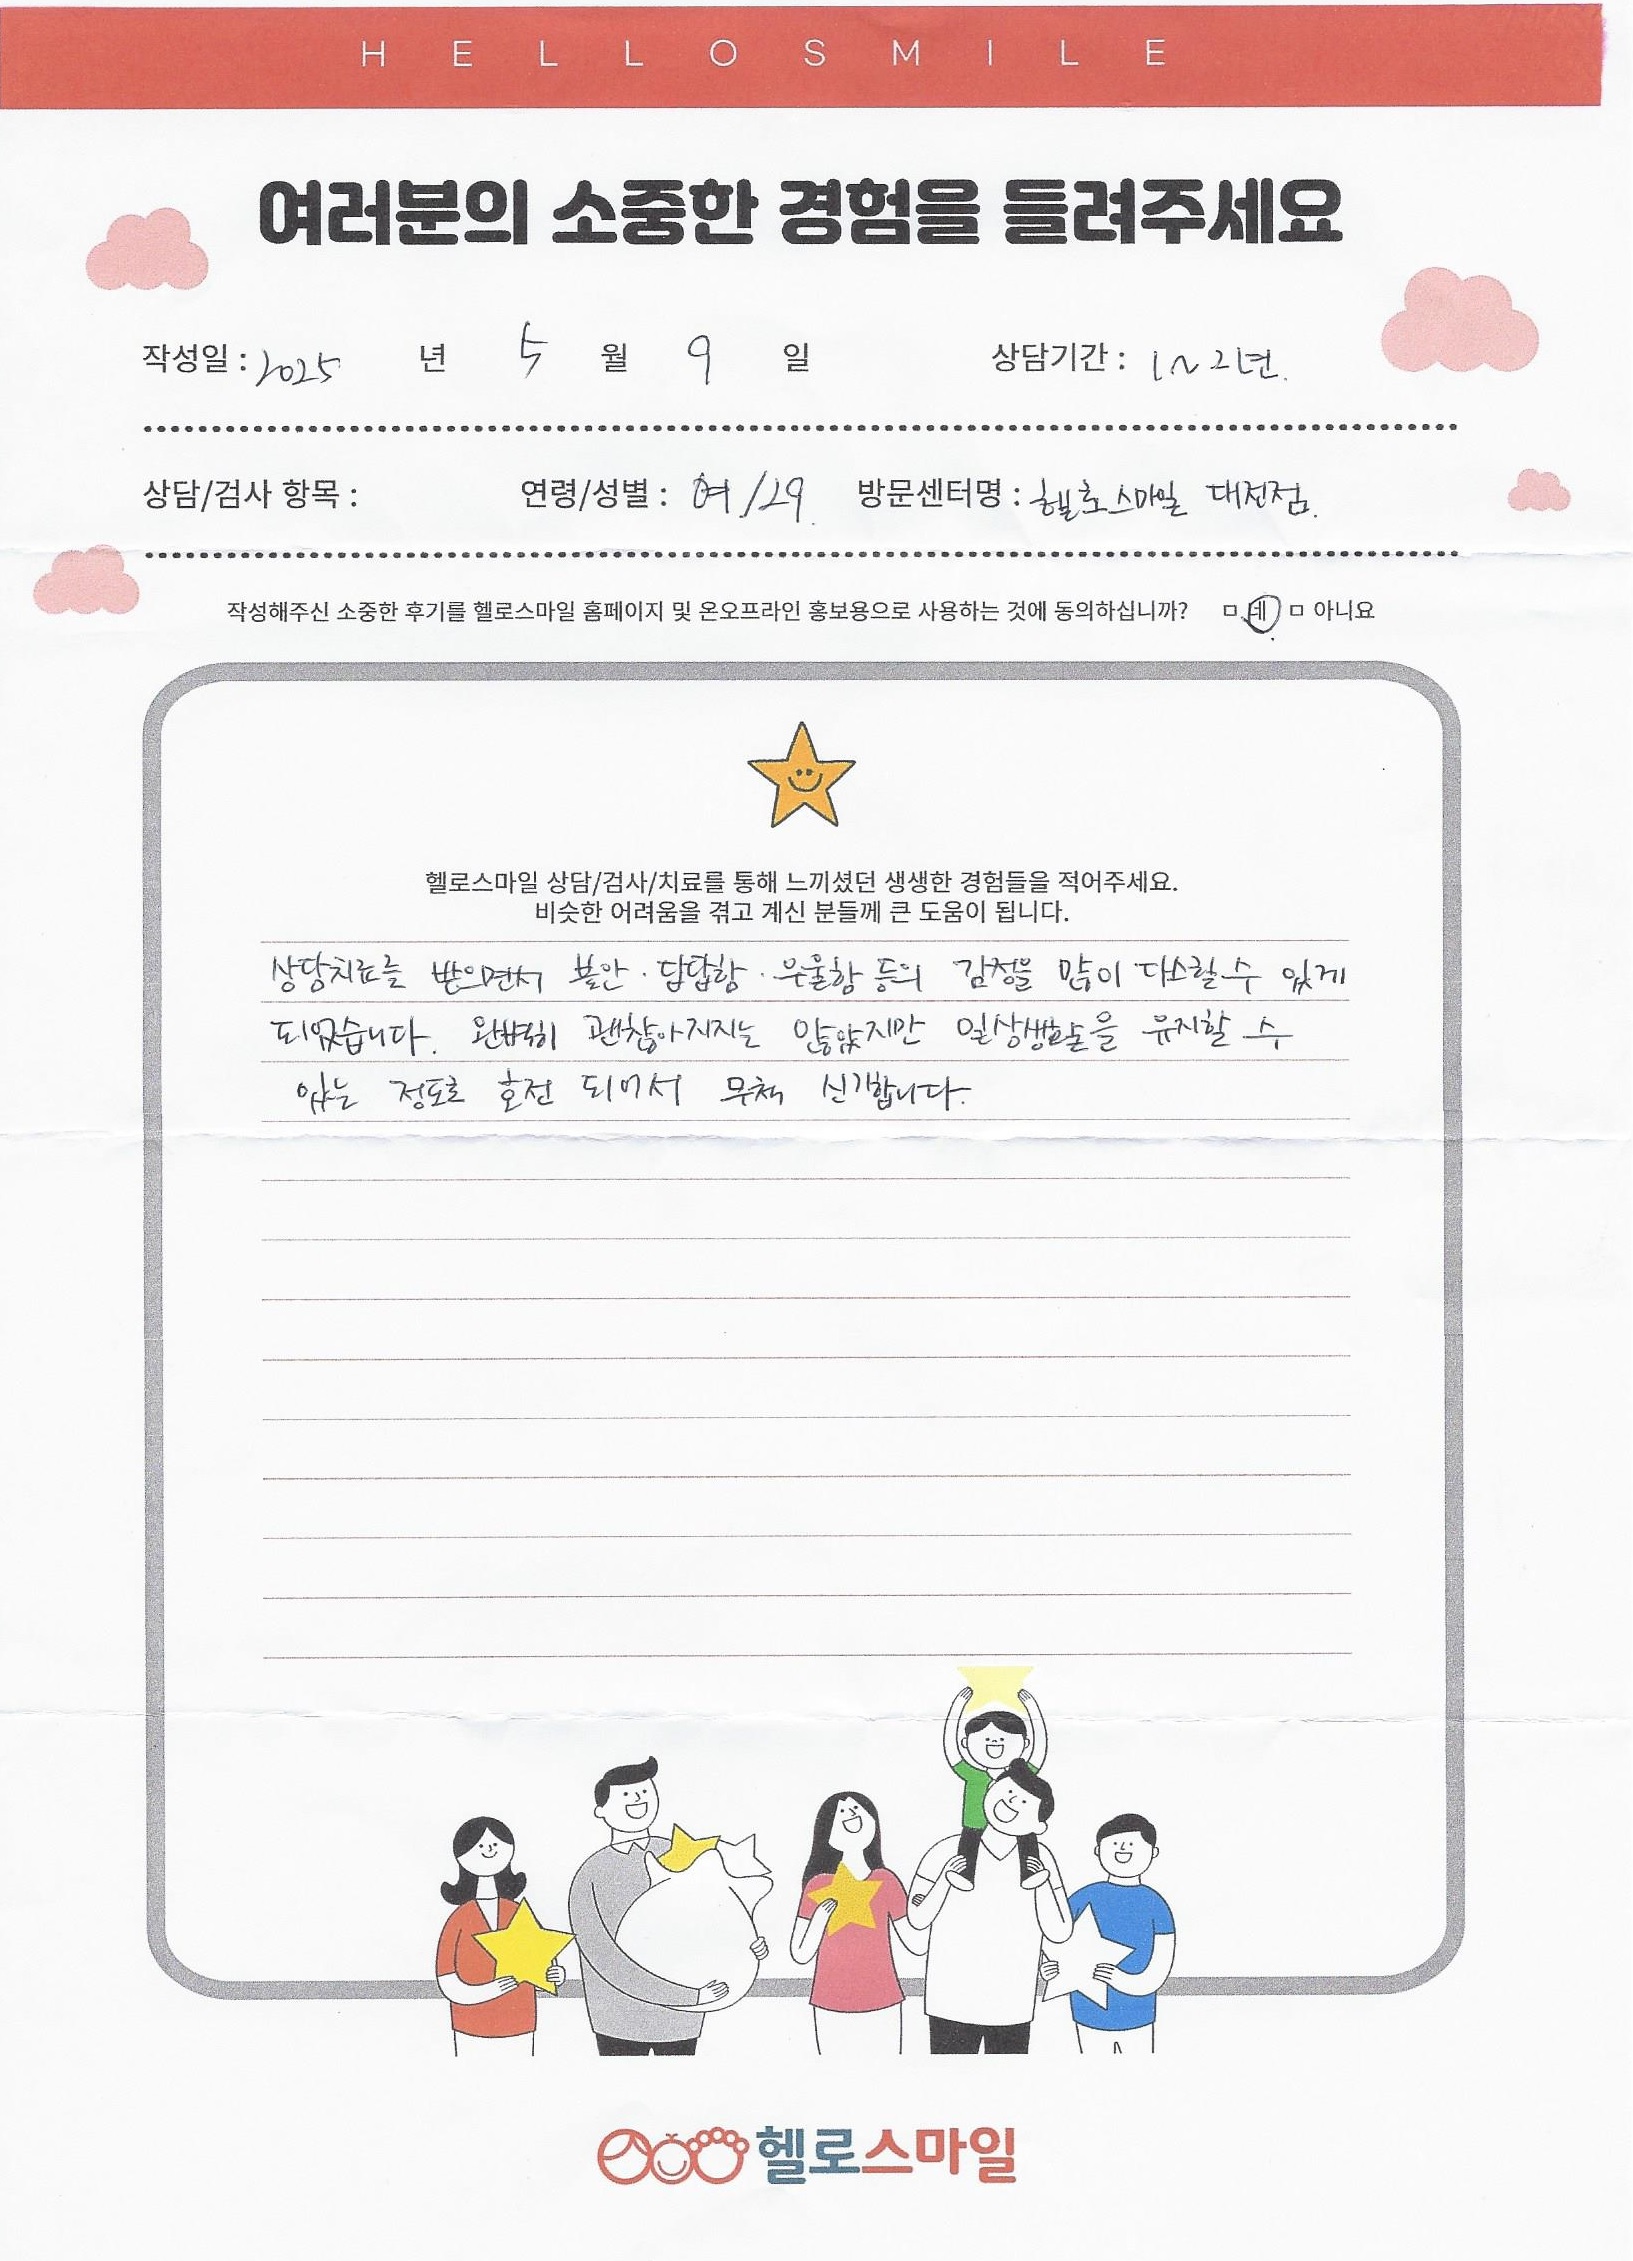 HELLOSMILE
여러분의 소중한 경험을 들려주세요
작성일 : 2025 년 5 월 9 일 상담기간 : 1~2년.
상담/검사 항목 : 연령/성별 : 여/29. 방문센터명 : 헬로스마일 대전점.
작성해주신 소중한 후기를 헬로스마일 홈페이지 및 온오프라인 홍보용으로 사용하는 것에 동의하십니까? ㅁ 네 ㅁ 아니요
헬로스마일 상담/검사/치료를 통해 느끼셨던 생생한 경험들을 적어주세요.
비슷한 어려움을 겪고 계신 분들께 큰 도움이 됩니다.
상담치료를 받으면서 불안·답답함·우울함 등의 감정을 많이 다스릴 수 있게
되었습니다. 완벽히 괜찮아지지는 않았지만 일상생활을 유지할 수
있는 정도로 호전 되어서 무척 신기합니다.
헬로스마일